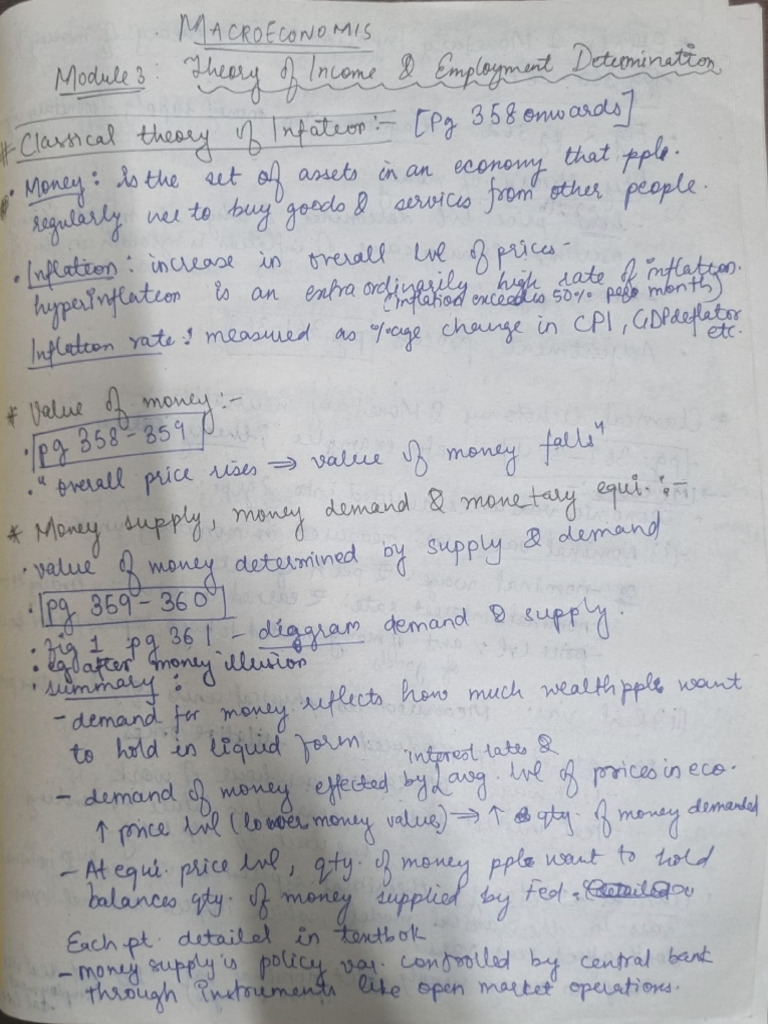 MACROECONOMIS
Module 3: Theory of Income & Employment Determination
# Classical theory of Inflation:- [Pg 358 onwards]
• Money: Is the set of assets in an economy that pple.
regularly use to buy goods & services from other people.
• Inflation: increase in overall lvl of prices-
hyperinflation is an extraordinarily high rate of inflation.
(inflation exceeds 50% per month)
Inflation rate: measured as %age change in CPI, GDP deflator
etc.
* Value of money:-
• pg 358-359
• "overall price rises ⇒ value of money falls"
* Money supply, money demand & monetary equi.:-
• value of money determined by supply & demand
• pg 359-360
• fig 1 pg 361 - diagram demand & supply.
• eg after money illusion
• summary:
- demand for money reflects how much wealth pple want
to hold in liquid form
interest rates &
- demand of money effected by avg. lvl of prices in eco.
↑ price lvl (lower money value) ⇒ ↑ qty. of money demanded
- At equi. price lvl, qty. of money pple want to hold
balances qty. of money supplied by Fed.
Each pt. detailed in textbok
- money supply is policy var. controlled by central bank
through instruments like open market operations.